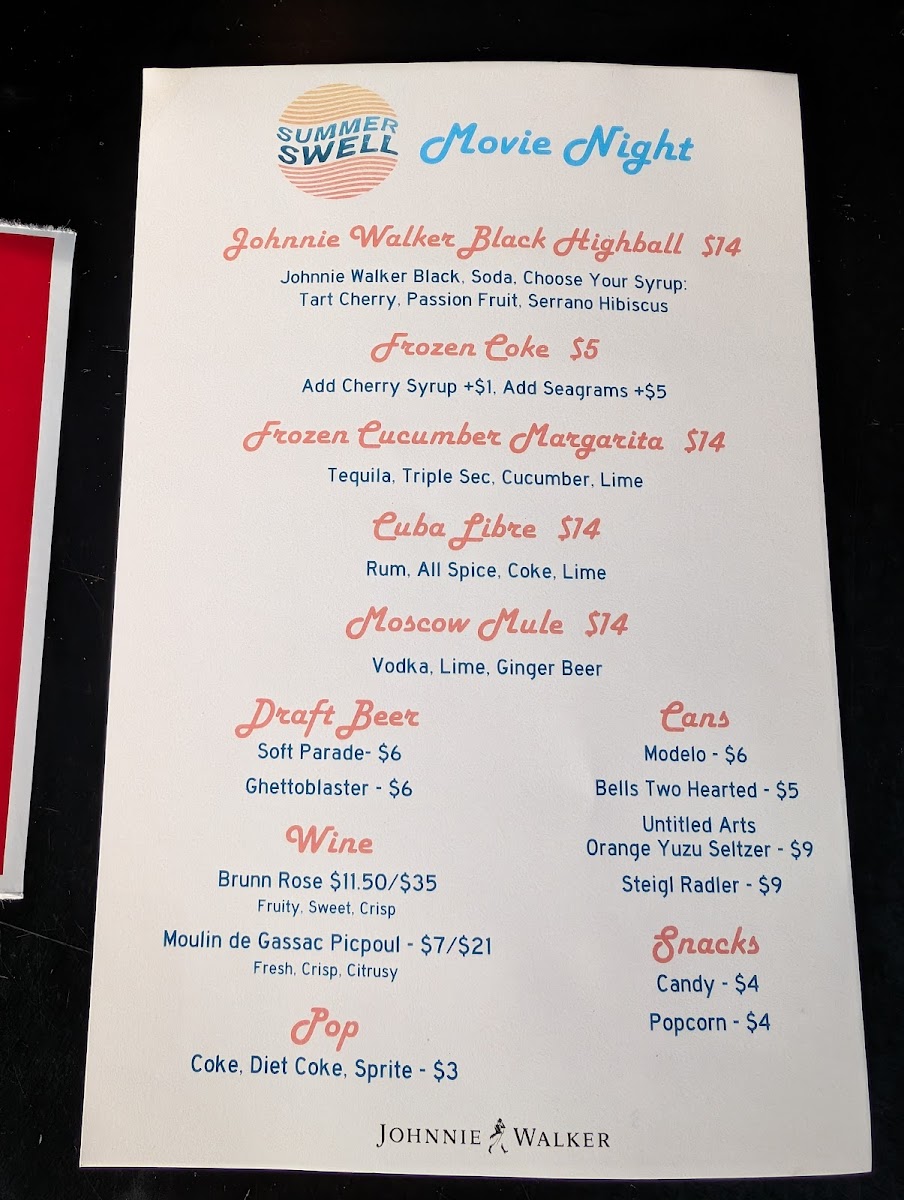 SUMMER
SWELL
Movie Night
Johnnie Walker Black Highball $14
Johnnie Walker Black, Soda, Choose Your Syrup:
Tart Cherry, Passion Fruit, Serrano Hibiscus
Frozen Coke $5
Add Cherry Syrup +$1, Add Seagrams +$5
Frozen Cucumber Margarita $14
Tequila, Triple Sec, Cucumber, Lime
Cuba Libre $14
Rum, All Spice, Coke, Lime
Moscow Mule $14
Vodka, Lime, Ginger Beer
Draft Beer
Soft Parade- $6
Ghettoblaster - $6
Wine
Brunn Rose $11.50/$35
Fruity, Sweet, Crisp
Moulin de Gassac Picpoul - $7/$21
Fresh, Crisp, Citrusy
Pop
Coke, Diet Coke, Sprite - $3
Cans
Modelo - $6
Bells Two Hearted - $5
Untitled Arts
Orange Yuzu Seltzer - $9
Steigl Radler - $9
Snacks
Candy - $4
Popcorn - $4
JOHNNIE WALKER